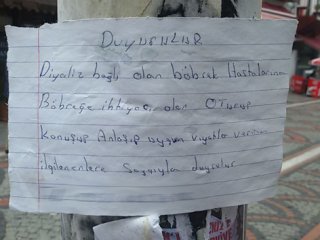 Duyurular
Diyaliz bağlı olan böbrek Hastalarına
Böbreğe ihtiyacı olan Oturup
Konuşup Anlaşıp uygun fiyata veririm
ilgilenenlere Saygıyla duyrulur